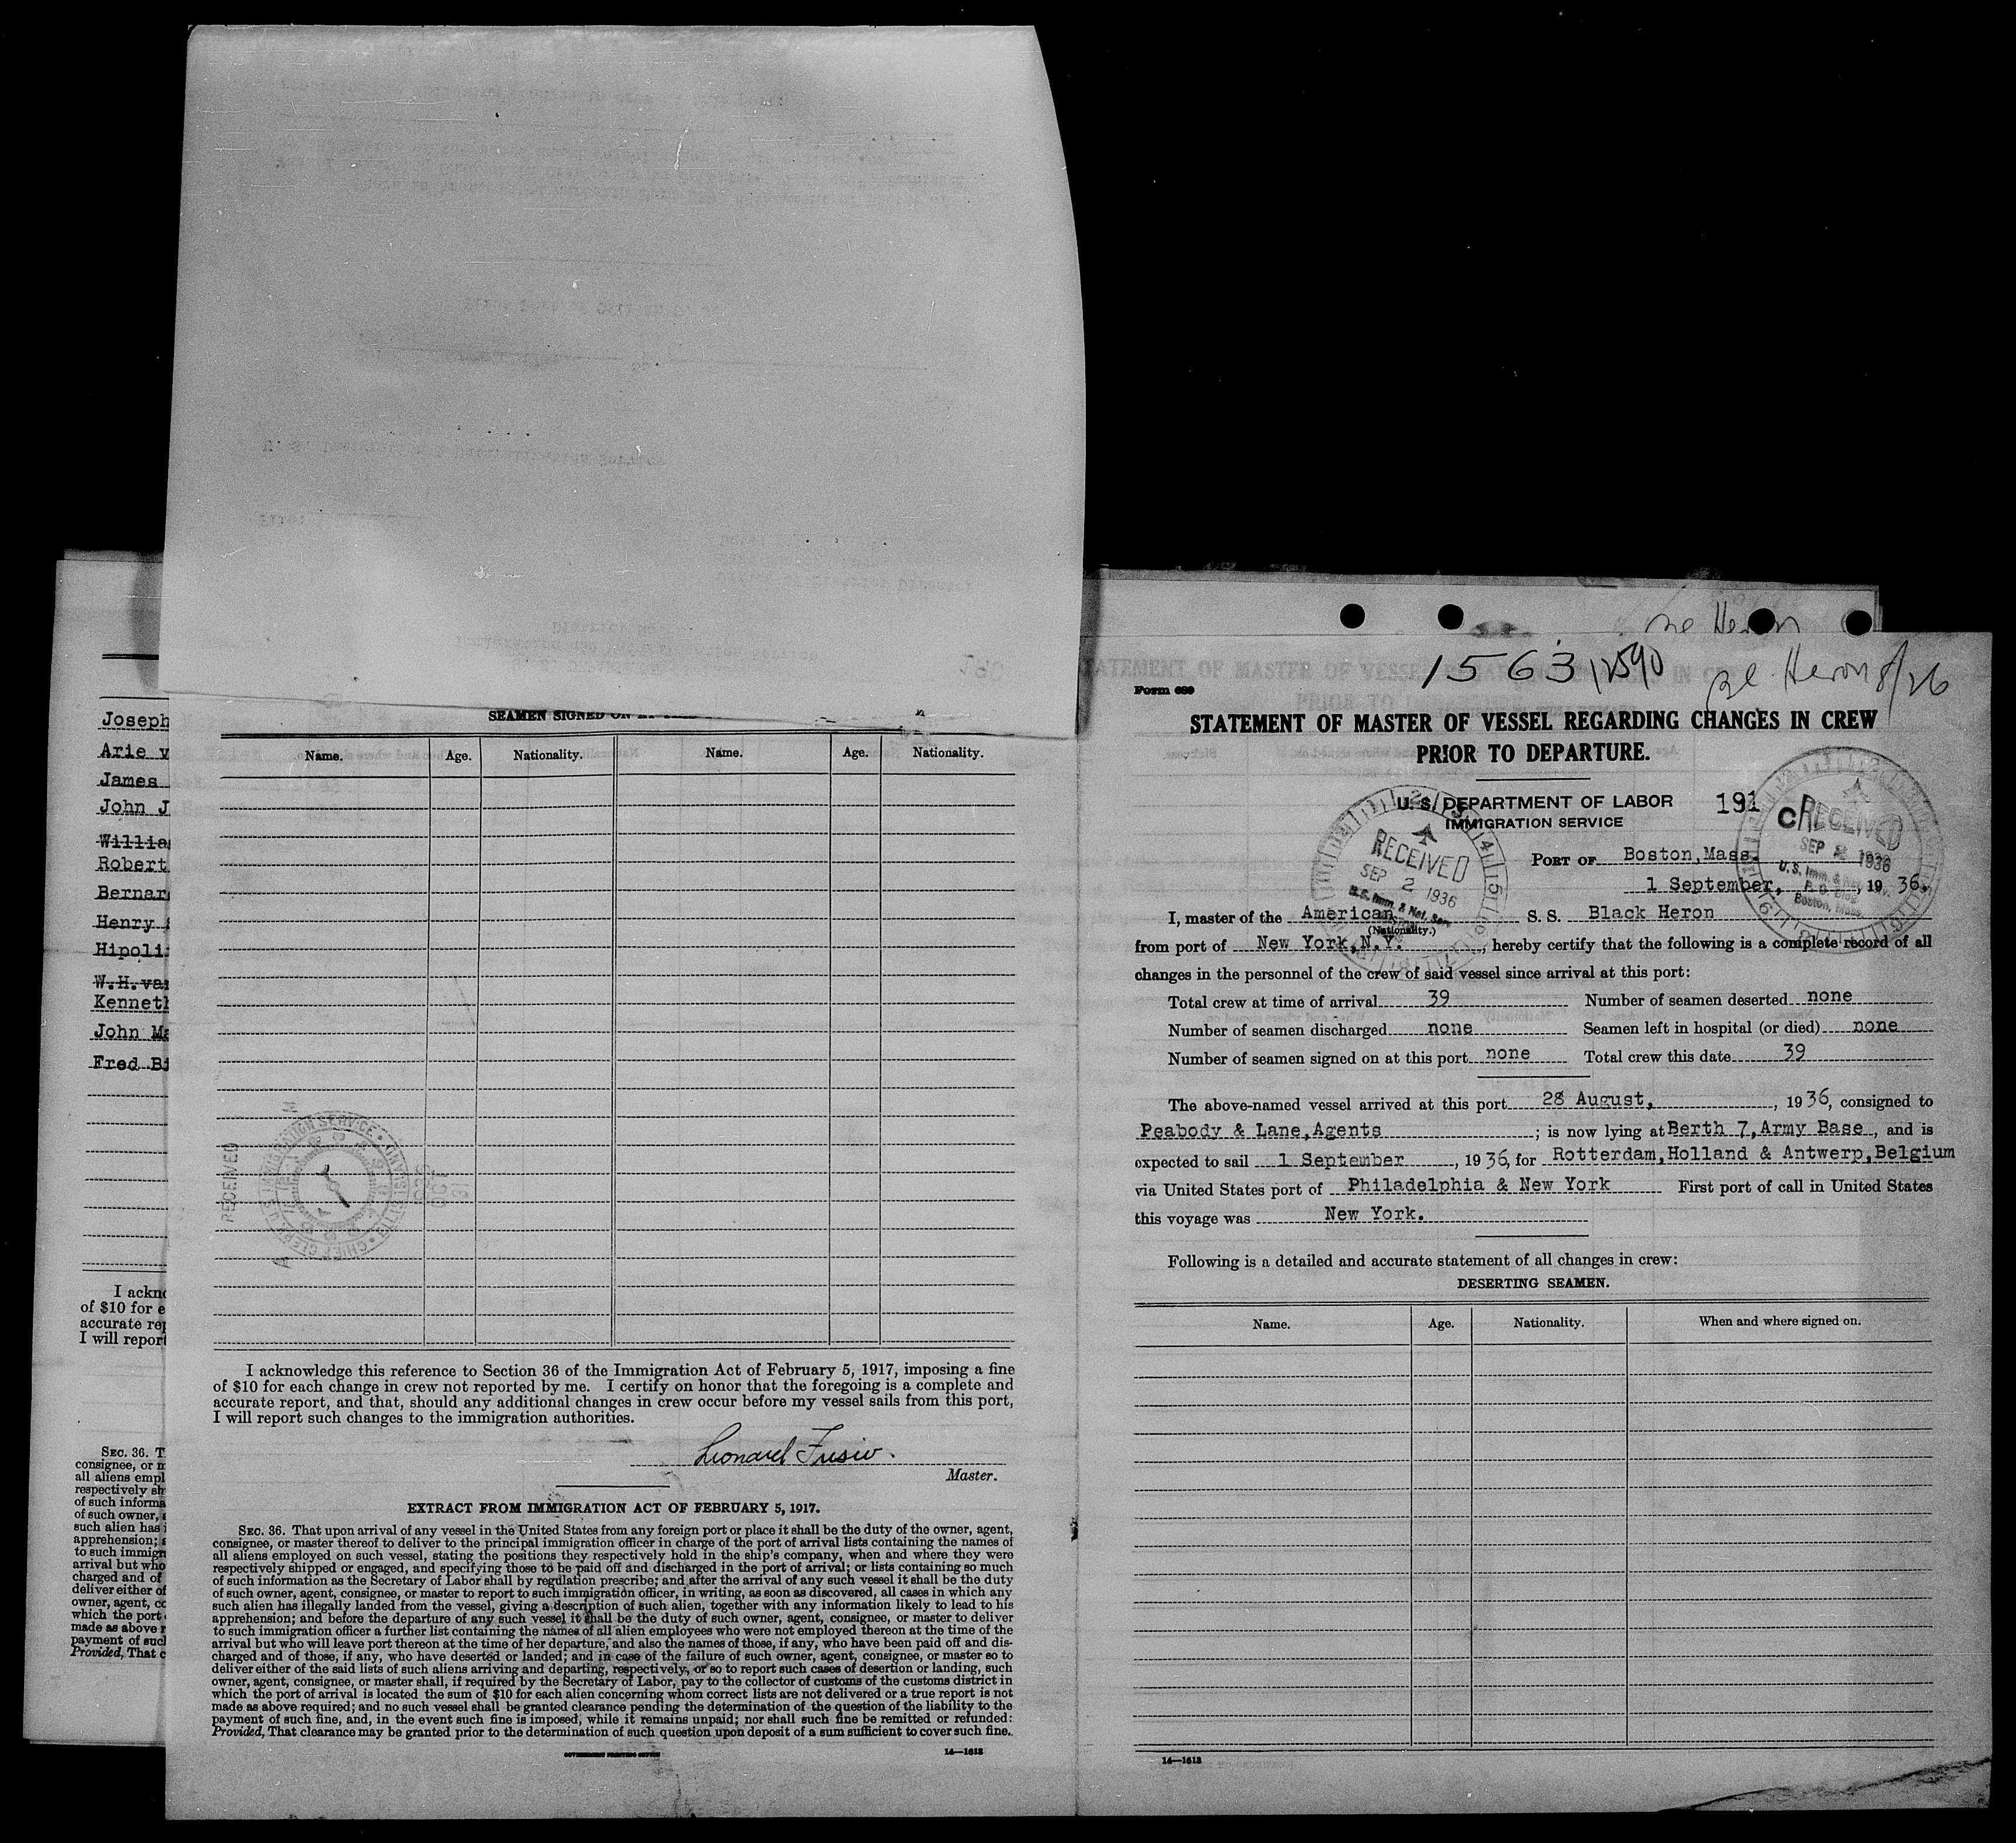 Joseph
Arie v
James
John J
Willia
Robert
Bernar
Henry
Hipoli
W.H.va
Kennetl
John Ma
Fred Bi
I ackn
of $10 for e
accurate rep
I will report
SEC. 36. T
consignee, or m
all aliens empl
respectively sh
of such informa
of such owner, a
such alien has i
apprehension; a
to such immigr
arrival but who
charged and of
deliver either of
owner, agent, co
which the port
made as above r
payment of sucl
Provided, That c
SEAMEN SIGNED ON
Name. Age. Nationality. Name. Age. Nationality.
RECEIVED
IMMIGRATION SERVICE
CHIEF CLERK
I acknowledge this reference to Section 36 of the Immigration Act of February 5, 1917, imposing a fine
of $10 for each change in crew not reported by me. I certify on honor that the foregoing is a complete and
accurate report, and that, should any additional changes in crew occur before my vessel sails from this port,
I will report such changes to the immigration authorities.
Leonard
Master.
EXTRACT FROM IMMIGRATION ACT OF FEBRUARY 5, 1917.
SEC. 36. That upon arrival of any vessel in the United States from any foreign port or place it shall be the duty of the owner, agent,
consignee, or master thereof to deliver to the principal immigration officer in charge of the port of arrival lists containing the names of
all aliens employed on such vessel, stating the positions they respectively hold in the ship's company, when and where they were
respectively shipped or engaged, and specifying those to be paid off and discharged in the port of arrival; or lists containing so much
of such information as the Secretary of Labor shall by regulation prescribe; and after the arrival of any such vessel it shall be the duty
of such owner, agent, consignee, or master to report to such immigration officer, in writing, as soon as discovered, all cases in which any
such alien has illegally landed from the vessel, giving a description of such alien, together with any information likely to lead to his
apprehension; and before the departure of any such vessel it shall be the duty of such owner, agent, consignee, or master to deliver
to such immigration officer a further list containing the names of all alien employees who were not employed thereon at the time of the
arrival but who will leave port thereon at the time of her departure, and also the names of those, if any, who have been paid off and dis-
charged and of those, if any, who have deserted or landed; and in case of the failure of such owner, agent, consignee, or master so to
deliver either of the said lists of such aliens arriving and departing, respectively, or so to report such cases of desertion or landing, such
owner, agent, consignee, or master shall, if required by the Secretary of Labor, pay to the collector of customs of the customs district in
which the port of arrival is located the sum of $10 for each alien concerning whom correct lists are not delivered or a true report is not
made as above required; and no such vessel shall be granted clearance pending the determination of the question of the liability to the
payment of such fine, and, in the event such fine is imposed, while it remains unpaid; nor shall such fine be remitted or refunded:
Provided, That clearance may be granted prior to the determination of such question upon deposit of a sum sufficient to cover such fine.
GOVERNMENT PRINTING OFFICE 14—1613
Heron
15631 2590 Bl. Heron 8/26
Form 689
STATEMENT OF MASTER OF VESSEL REGARDING CHANGES IN CREW
PRIOR TO DEPARTURE.
U. S. DEPARTMENT OF LABOR 191
IMMIGRATION SERVICE
RECEIVED
SEP 2 1936
U.S. Imm. & Nat. Ser.
RECEIVED
SEP 2 1936
U.S. Imm. & Nat. Ser.
Boston, Mass.
PORT OF Boston,Mass.
1 September, 1936.
I, master of the American S. S. Black Heron
(Nationality.)
from port of New York,N.Y. , hereby certify that the following is a complete record of all
changes in the personnel of the crew of said vessel since arrival at this port:
Total crew at time of arrival 39 Number of seamen deserted none
Number of seamen discharged none Seamen left in hospital (or died) none
Number of seamen signed on at this port none Total crew this date 39
The above-named vessel arrived at this port 28 August, , 1936, consigned to
Peabody & Lane,Agents ; is now lying at Berth 7,Army Base , and is
expected to sail 1 September , 1936, for Rotterdam,Holland & Antwerp,Belgium
via United States port of Philadelphia & New York First port of call in United States
this voyage was New York.
Following is a detailed and accurate statement of all changes in crew:
DESERTING SEAMEN.
Name. Age. Nationality. When and where signed on.
14—1613